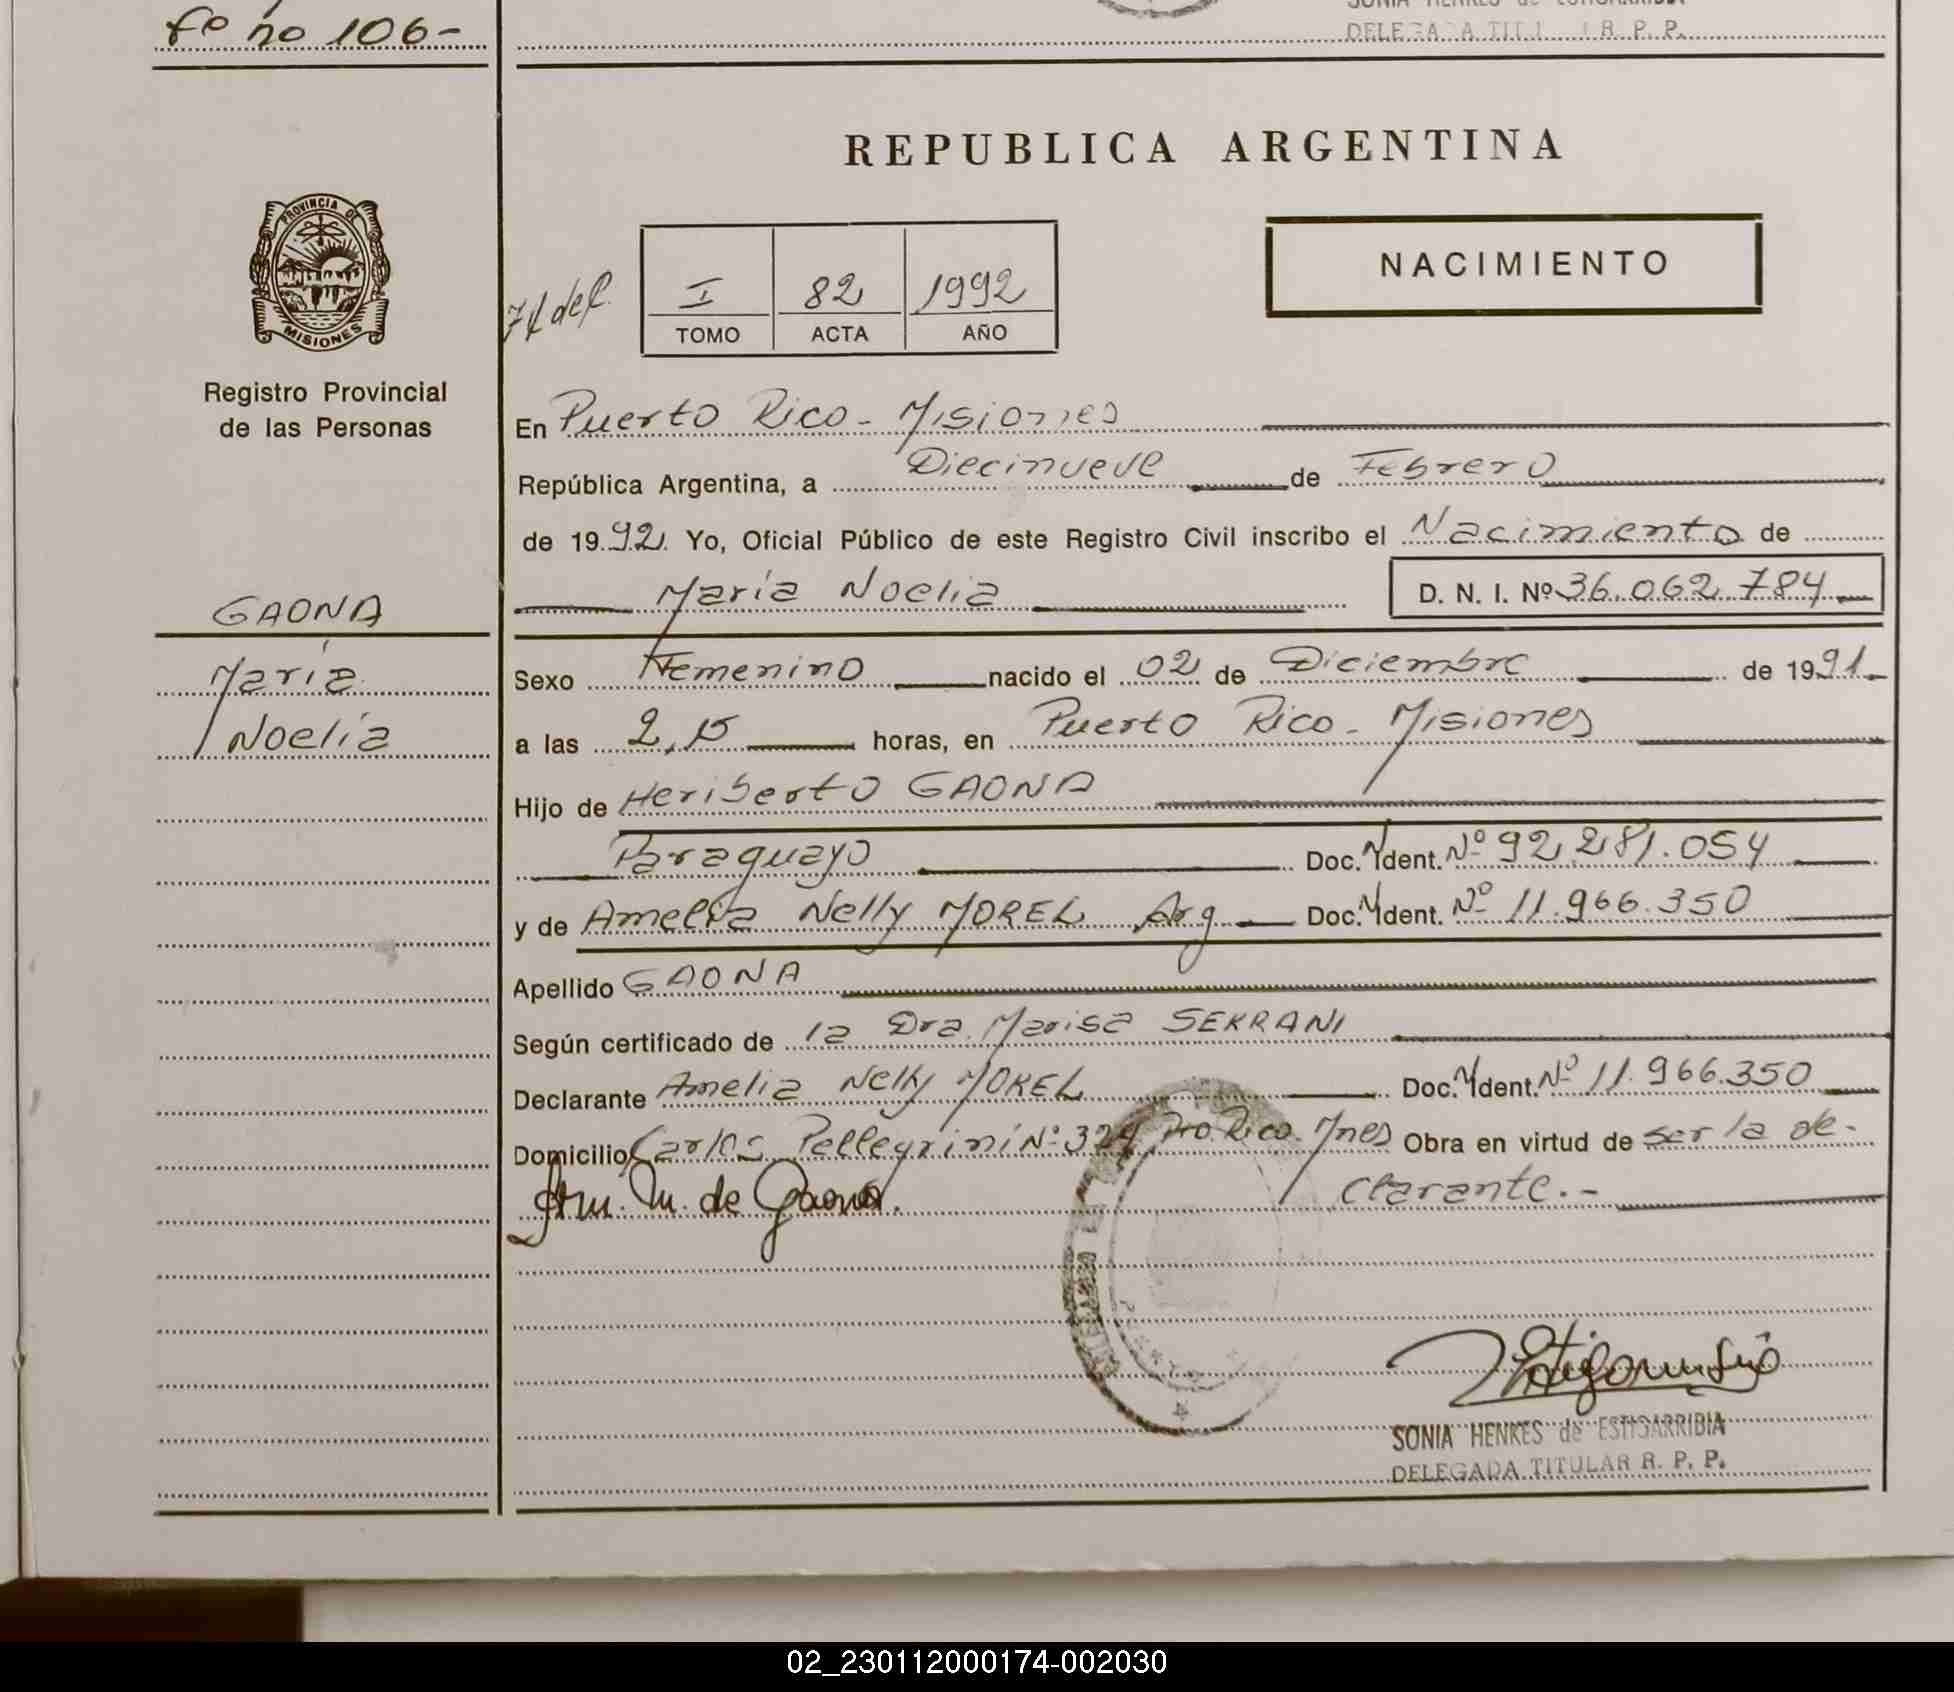 fº nº 106-
DELEGADA TITULAR R. P. P.
REPUBLICA ARGENTINA
PROVINCIA DE
MISIONES
Registro Provincial
de las Personas
I 82 1992
TOMO ACTA AÑO
NACIMIENTO
En Puerto Rico - Misiones
República Argentina, a Diecinueve de Febrero
de 1992. Yo, Oficial Público de este Registro Civil inscribo el Nacimiento de
María Noelia D. N. I. Nº 36.062.784
GAONA
María
Noelia
Sexo Femenino nacido el 02 de Diciembre de 1991
a las 2,15 horas, en Puerto Rico - Misiones
Hijo de Heriberto GAONA
Paraguayo Doc. Ident. Nº 92.281.054
y de Amelia Nelly MOREL Arg Doc. Ident. Nº 11.966.350
Apellido GAONA
Según certificado de la Dra. Marisa SEKRANI
Declarante Amelia Nelly MOREL Doc. Ident. Nº 11.966.350
Domicilio Carlos Pellegrini Nº 324 Pto. Rico. Mnes Obra en virtud de ser la de-
clarante.-
Am. M. de Gaona.
SONIA HENKES de ESTIGARRIBIA
DELEGADA TITULAR R. P. P.
02_230112000174-002030